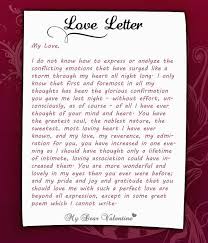 Love Letter
My Love,
I do not know how to express or analyze the
conflicting emotions that have surged like a
storm through my heart all night long. I only
know that first and foremost in all my
thoughts has been the glorious confirmation
you gave me last night - without effort, un-
consciously, as of course - of all I have ever
thought of you or hoped for you. You have the
greatest soul, the noblest nature, the
sweetest, most loving heart I have ever
known, and my love, my reverence, my admir-
ation for you, have increased in one evening
as I should have thought only a lifetime of
intimate, loving association could have increas-
ed them. You are more wonderful and
lovely in my eyes than you ever were before;
and my pride and joy and gratitude that you
should love me with such a perfect love are
beyond all expression, except in some great
poem which I cannot write.
My Dear Valentine